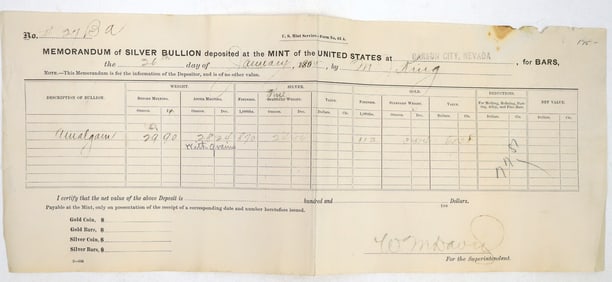 No.
U. S. Mint Service—Form No. 61 A.
MEMORANDUM of SILVER BULLION deposited at the MINT of the UNITED STATES at CARSON CITY, NEVADA
the 26th day of January, 189 , by M King , for BARS,
NOTE.—This Memorandum is for the information of the Depositor, and is of no other value.
DESCRIPTION OF BULLION. WEIGHT. SILVER. GOLD. DEDUCTIONS. NET VALUE.
BEFORE MELTING. AFTER MELTING. FINENESS. Fine STANDARD WEIGHT. VALUE. FINENESS. STANDARD WEIGHT. VALUE. For Melting, Refining, Parting, Alloy, and Fine Bars.
Ounces. Dec. 1,000ths. Ounces. Dec. Dollars. Cts. 1,000ths. Ounces. Dec. Dollars. Cts. Dollars. Cts. Dollars. Cts.
Amalgam 29 90 28 24
with grains
I certify that the net value of the above Deposit is hundred and Dollars.
Payable at the Mint, only on presentation of the receipt of a corresponding date and number heretofore issued. 100
Gold Coin, $
Gold Bars, $
Silver Coin, $
Silver Bars, $
Wm Davis
For the Superintendent.